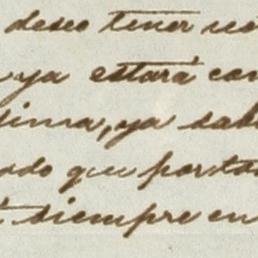 deseo tener no
ya estará con
ima, ya sab
do que porta
siempre en